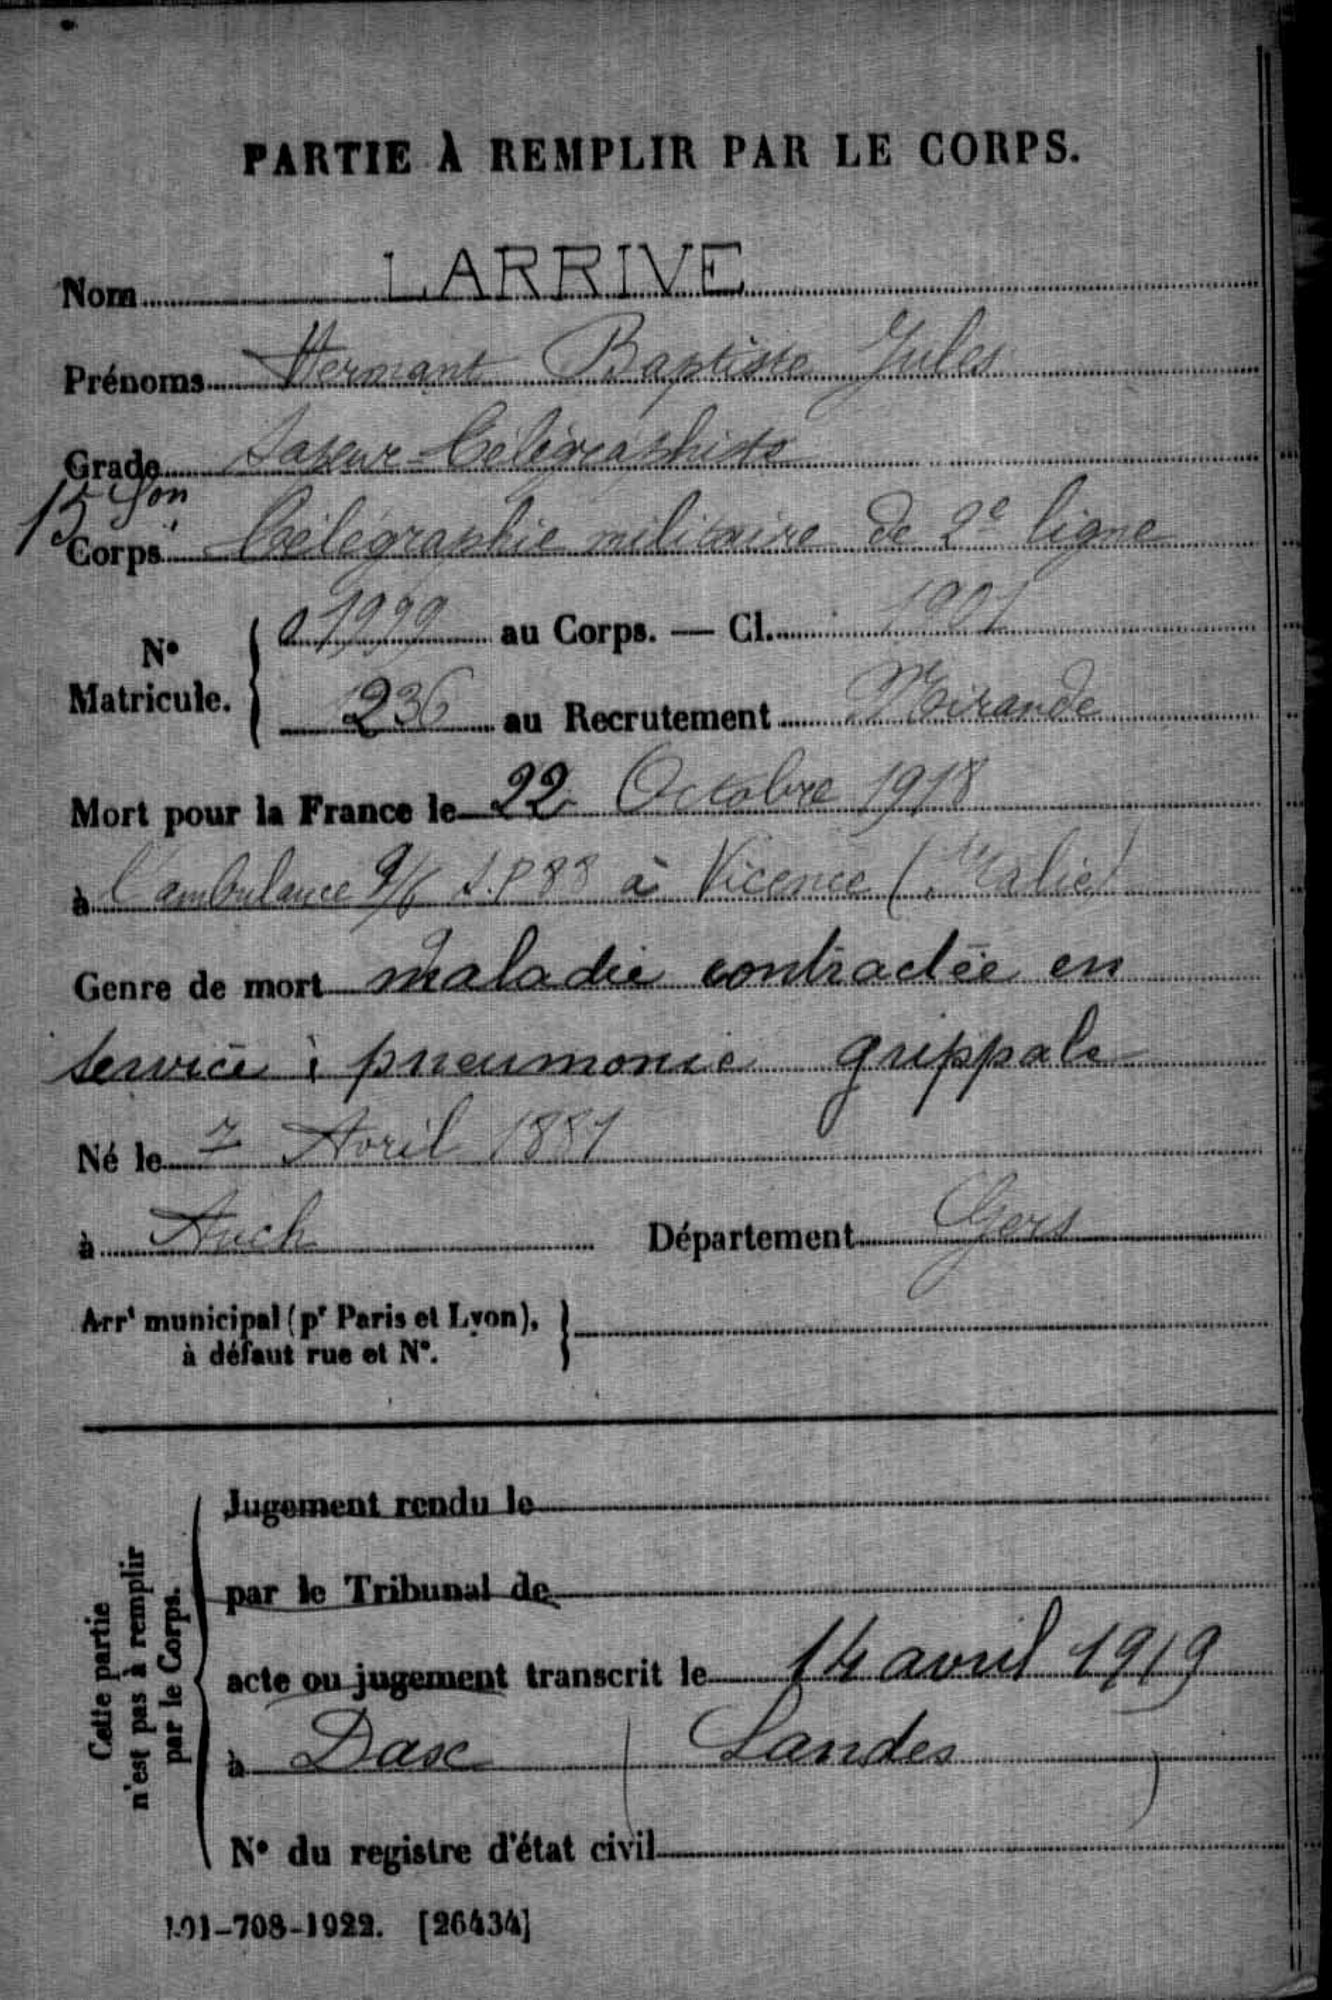 PARTIE À REMPLIR PAR LE CORPS.
Nom LARRIVE
Prénoms Hermant Baptiste Jules
Grade Sapeur-Télégraphiste
15 Son
Corps Télégraphie militaire de 2e ligne
No Matricule. { 01999 au Corps. — Cl. 1901
236 au Recrutement Mirande
Mort pour la France le 22 Octobre 1918
à l'ambulance 9/6 S.P 83 à Vicence (Italie)
Genre de mort maladie contractée en
service : pneumonie grippale
Né le 7 Avril 1881
à Auch Département Gers
Arrt municipal (pr Paris et Lyon),
à défaut rue et No.
Cette partie
n'est pas à remplir
par le Corps.
Jugement rendu le
par le Tribunal de
acte ou jugement transcrit le 14 avril 1919
à Dax (Landes)
No du registre d'état civil
101-708-1922. [26434]